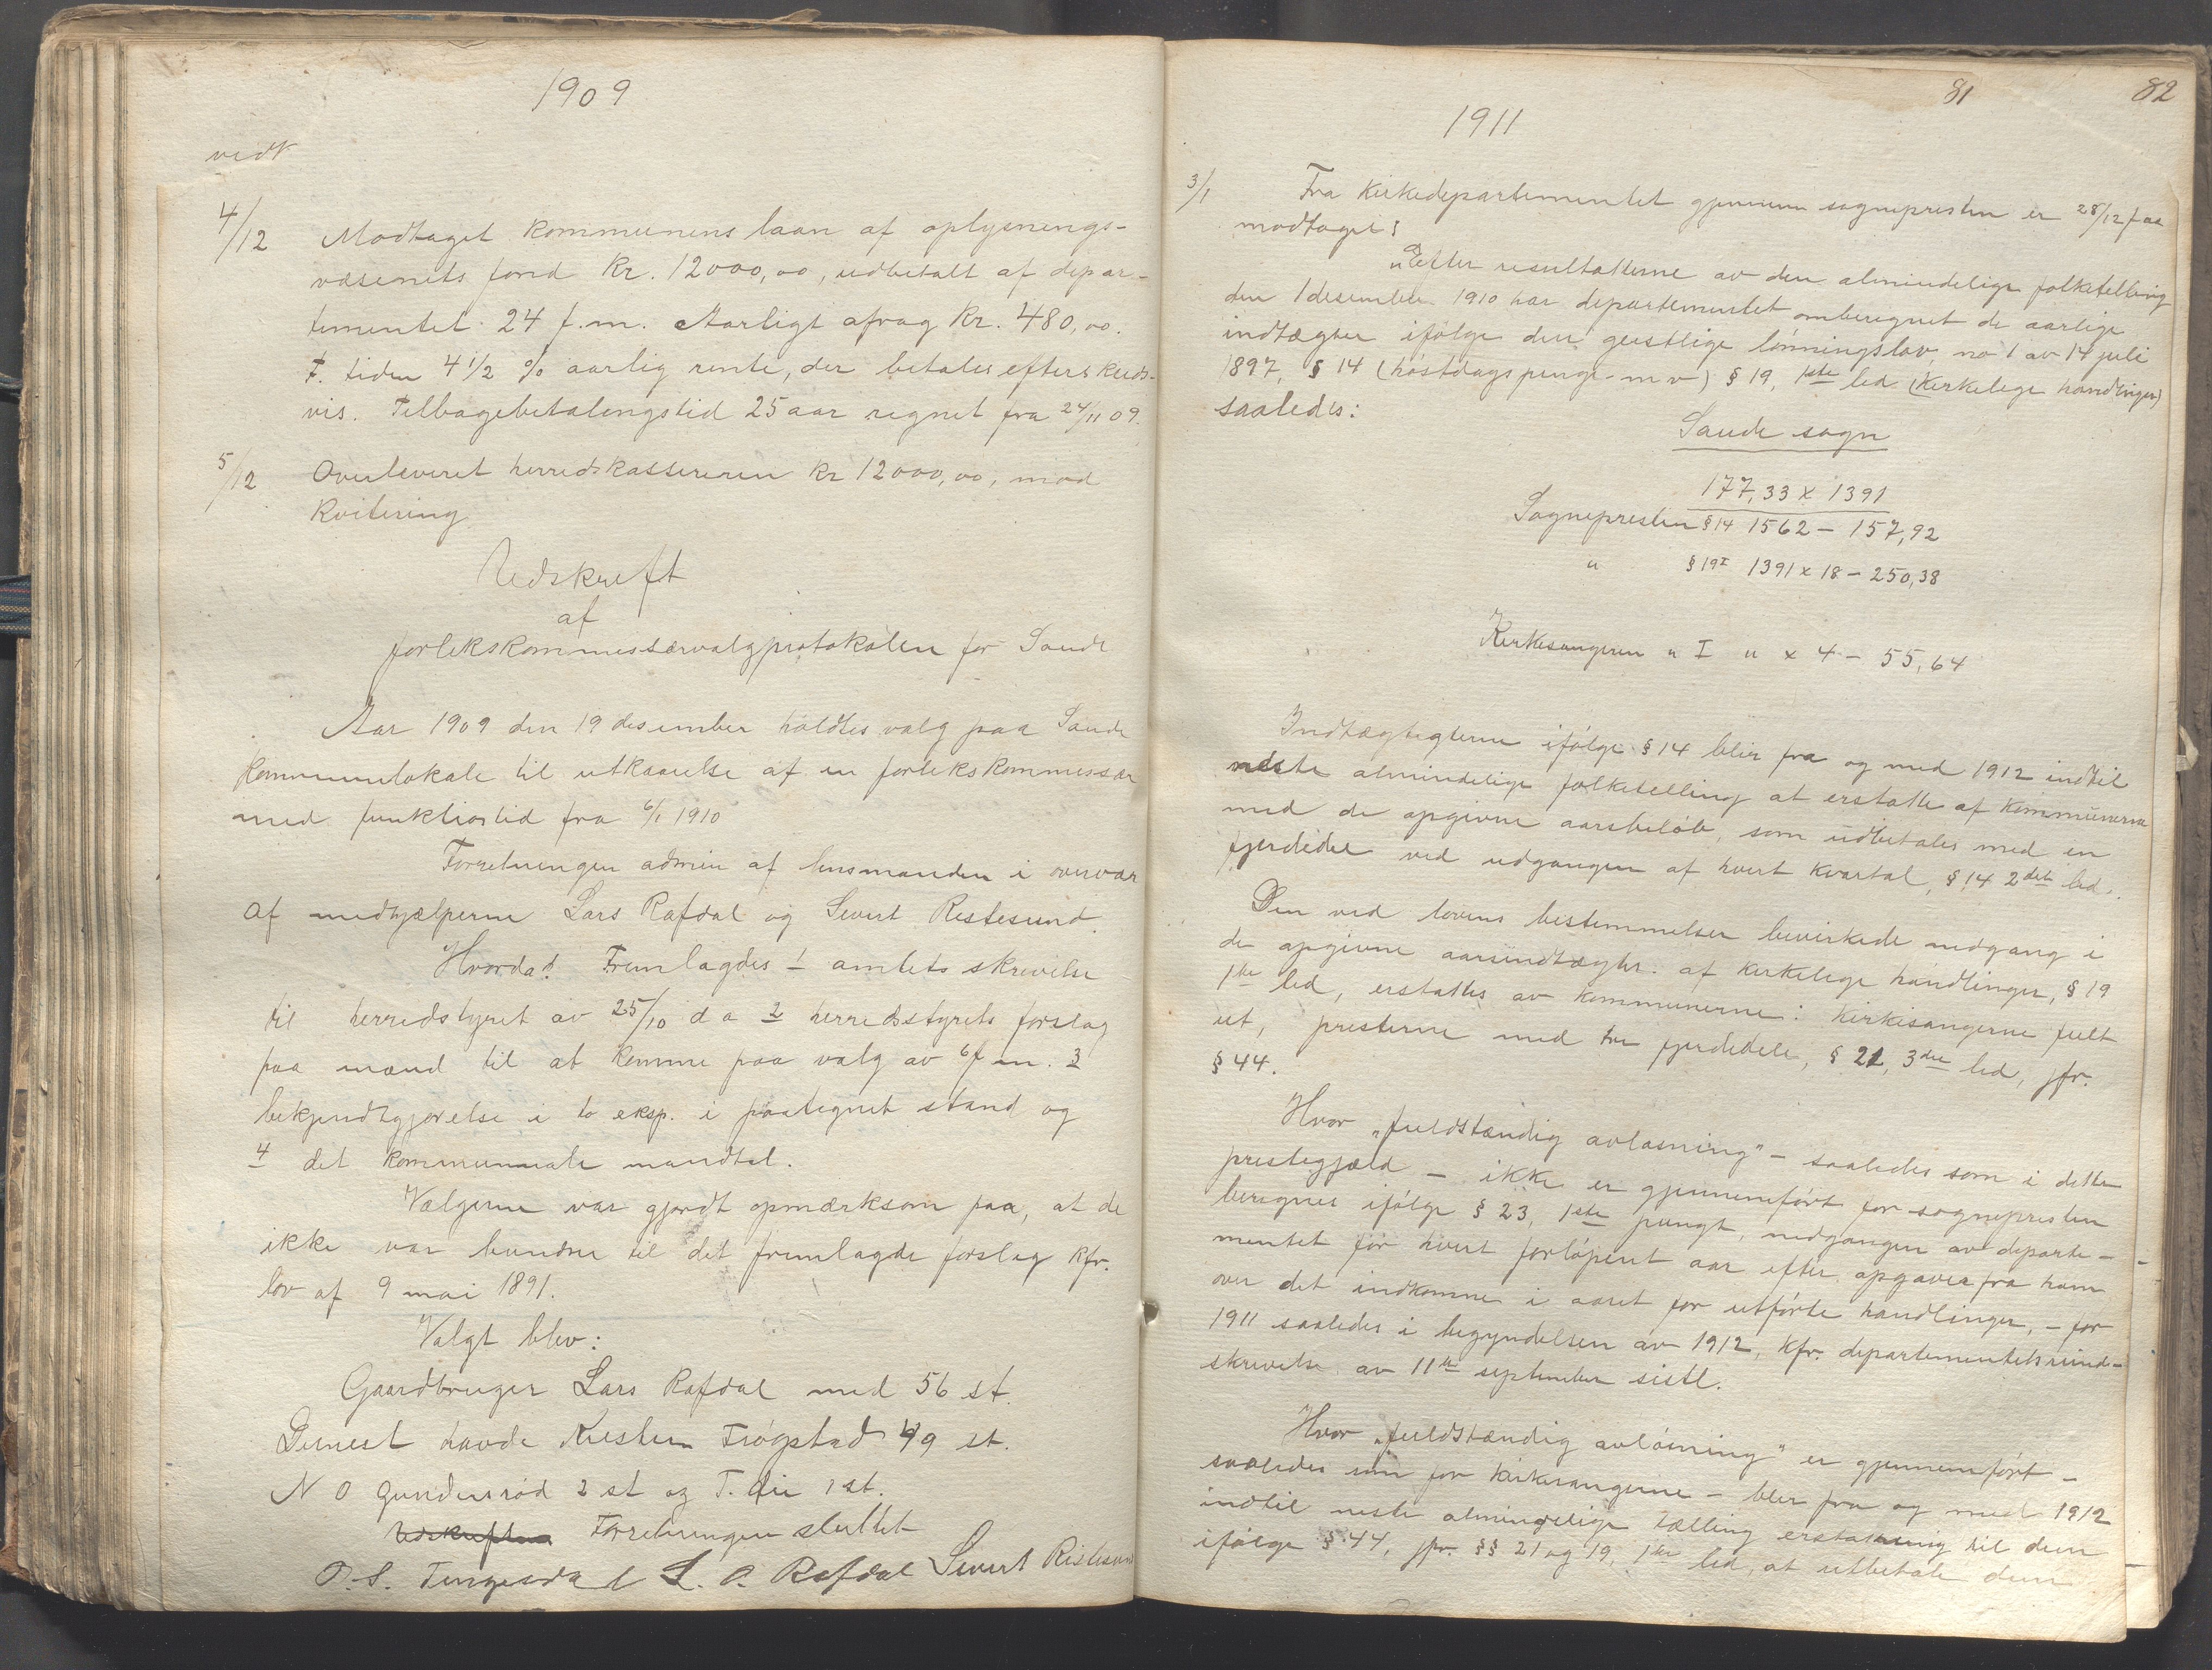 1909
vedt
4/12 Modtaget kommunens laan af oplysnings-
væsenets fond kr. 12000,00, udbetalt af depar-
tementet 24 f.m. Aarligt afrag kr. 480,00.
F. tiden 4 1/2 % aarlig rente, der betales efterskuds-
vis. Tilbagebetalingstid 25 aar regnet fra 24/11 09.
5/12 Overleveret herredskassereren kr 12000,00, mod
kvitering
Udskrift
af
forlikskommissærvalgprotokolen for Saude
Aar 1909 den 19 desember holdtes valg paa Saude
kommunelokale til utkaarelse af en forlikskommissær
med funktionstid fra 6/1 1910
Forretningen admin af lensmanden i overvær
af medhjælperne Lars Rafdal og Sivert Ristesund.
Hvorda! Fremlagdes 1 amtets skrivelse
til herredstyret av 25/10 d a 2 herredsstyrets forslag
paa mænd til at komme paa valg av 6 f m. 3
bekjendtgjørelse i to eksp. i paategnet stand og
4 det kommunale mandtal.
Vælgerne var gjordt opmærksom paa, at de
ikke var bundne til det fremlagde forslag kfr.
lov af 9 mai 1891.
Valgt blev:
Gaardbruger Lars Rafdal med 56 st.
Dernest havde Kristen Frøgstad 49 st.
N O Gundersrød 2 st og T. 1 st.
Forretningen sluttet
L. O. Rafdal Sivert Ristesund
81 82
1911
3/1 Fra Kirkedepartementet gjennem sognepresten er 28/12 f aa
modtaget:
"Efter resultatterne av den almindelige folketelling
den 1 desember 1910 har departementet omberegnet de aarlige
indtægter ifølge den geistlige lønningslov no 1 av 14 juli
1897, § 14 (høstdagspenge m v) § 19, 1ste led (kirkelige handlinger)
saaledes:
Saude sogn
177,33 x 1391
Sognepresten § 14 1562 – 157,92
" § 19 I 1391 x 18 – 250,38
Kirkesangeren " I " x 4 – 55,64
Indtægtegterne ifølge § 14 blir fra og med 1912 indtil
næste almindelige folketelling at erstatte af kommunerne
med de opgivne aarsbeløb, som udbetales med en
fjerdedel ved udgangen af hvert kvartal, § 14 2det led.
Den ved lovens bestemmelser bevirkede nedgang i
de opgivne aarsindtægter af kirkelige handlinger, § 19
1ste led, erstattes av kommunerne: kirkesangerne fuldt
ut, presterne med tre fjerdedele, § 21, 3die led, jfr.
§ 44.
Hvor "fuldstændig avløsning" – saaledes som i dette
prestegjæld – ikke er gjennemført for sognepresten
beregnes ifølge § 23, 1ste pungt, nedgangen av departe-
mentet for hvert forløpent aar efter opgaver fra ham
over det indkomne i aaret for utførte handlinger, – for
1911 saaledes i begyndelsen av 1912, kfr. departementets rund-
skrivelse av 11te september sistl.
Hvor "fuldstændig avløsning" er gjennemført –
saaledes som for kirkesangerne – blir fra og med 1912
indtil neste almindelige tælling erstatning til dem
ifølge § 44, jfr. §§ 21 og 19, 1ste led, at utbetale dem